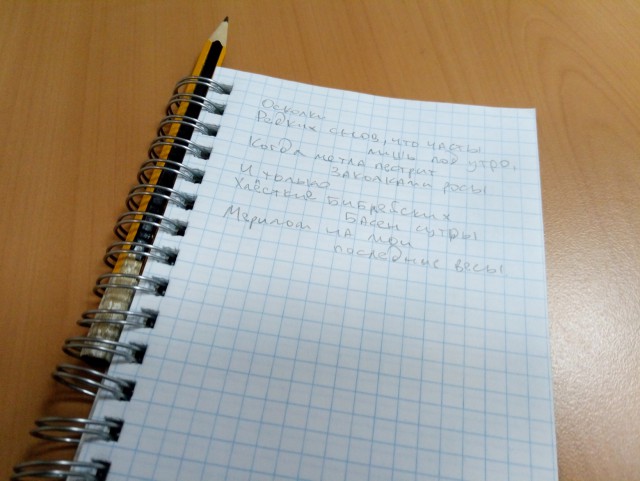 Осколки
Редких снов, что часты
лишь под утро,
Когда метла пестрит
заколками росы
И только
Хлесткие Библейских
басен сутры
Мерилом на
последние весы